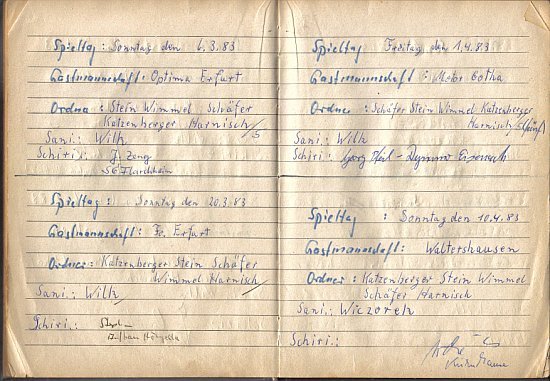 Spieltag: Sonntag den 6.3.83
Gastmannschaft: Optima Erfurt
Ordner: Stein Wimmel Schäfer
Katzenberger Harnisch/5
Sani: Wilk
Schiri: J. Zeng
SG
Spieltag: Sonntag den 20.3.83
Gastmannschaft: Fo. Erfurt
Ordner: Katzenberger Stein Schäfer
Wimmel Harnisch
Sani: Wilk
Schiri:
Aufbau
Spieltag Freitag den 1.4.83
Gastmannschaft: Motor Gotha
Ordner: Schäfer Stein Wimmel Katzenberger
Harnisch/5 (fünf)
Sani: Wilk
Schiri: Georg - Dynamo Eisenach
Spieltag: Sonntag den 10.4.83
Gastmannschaft: Waltershausen
Ordner: Katzenberger Stein Wimmel
Schäfer Harnisch
Sani: Wiczorek
Schiri: